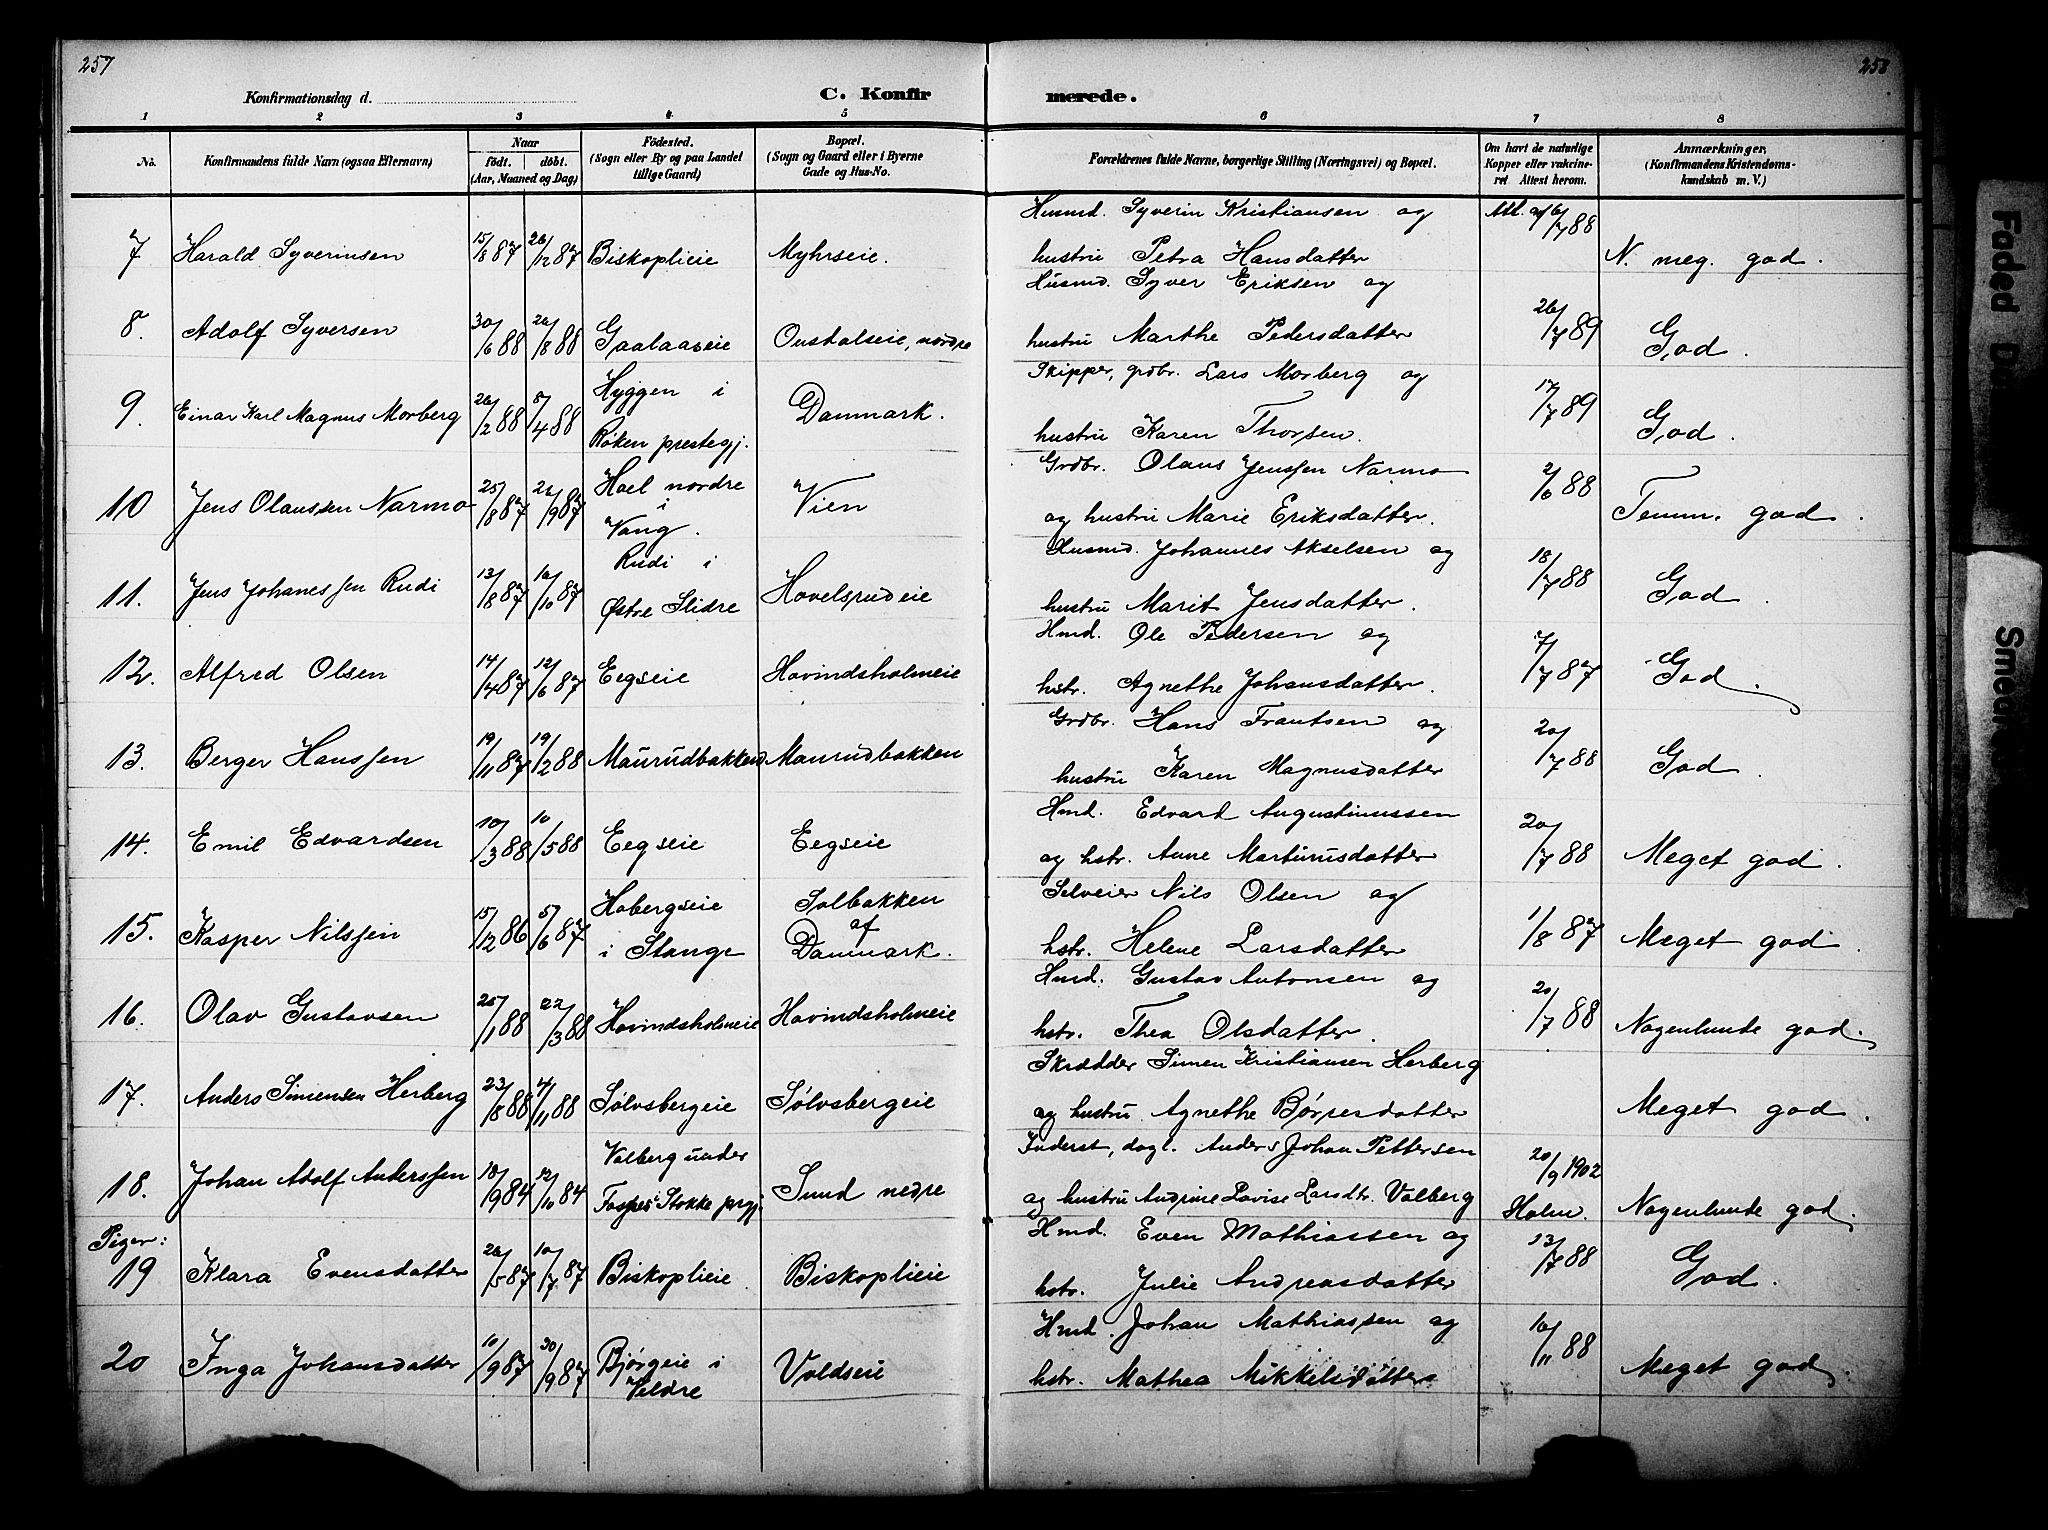 257
258
Konfirmationsdag d.
C. Konfirmerede.
1 2 3 4 5 6 7 8
No.
Konfirmandens fulde Navn (ogsaa Efternavn)
Naar
födt. döbt.
(Aar, Maaned og Dag)
Födested.
(Sogn eller By og paa Landet
tillige Gaard)
Bopæl.
(Sogn og Gaard eller i Byerne
Gade og Hus-No.
Forældrenes fulde Navne, borgerlige Stilling (Næringsvei) og Bopæl.
Om havt de naturlige
Kopper eller vakcine-
ret Attest herom.
Anmærkninger,
(Konfirmandens Kristendoms-
kundskab m. V.)
7 Harald Syverinsen 15/8 87 26/12 87 Biskoplieie Myhrseie.
Husmd. Syverin Kristiansen og
hustru Petra Hansdatter
Att. af 6/7 88 N. meg. god.
8. Adolf Syversen 30/6 88 26/8 88 Gaalaaseie Oustalseie, nordre
Husmd. Syver Eriksen og
hustru Marthe Pedersdatter
26/7 89 God.
9. Einar Karl Magnus Morberg 26/2 88 8/4 88 Hyggen i
Røken prestegj. Danmark.
Skipper, grdbr. Lars Morberg og
hustru Karen Thorsen.
17/7 89 God.
10 Jens Olaussen Narmo 25/8 87 26/9 87 Hoel nordre
i
Vang. Vien
Grdbr. Olaus Jenssen Narmo
og hustru Marie Eriksdatter.
2/6 88 Temm. god.
11. Jens Johanessen Rudi 13/8 87 16/10 87 Rudi i
Østre Slidre Hovelsrudeie
Husmd. Johannes Akselsen og
hustru Marit Jensdatter.
18/7 88 God.
12. Alfred Olsen 14/4 87 12/6 87 Eegseie Hovindsholmeie
Hmd. Ole Pedersen og
hstr. Agnethe Johansdatter.
7/7 87 God.
13. Berger Hanssen 19/11 87 19/2 88 Maurudbakken Maurudbakken
Grdbr. Hans Frantsen og
hustru Karen Magnusdatter
20/7 88 God.
14. Emil Edvardsen 10/3 88 10/5 88 Eegseie Eegseie
Hmd. Edvart Augustinussen
og hstr. Anne Martinusdatter
20/7 88 Meget god.
15. Kasper Nilssen 15/12 86 5/6 87 Hobergseie
i Stange Solbakken
af
Danmark.
Selveier Nils Olsen og
hstr. Helene Larsdatter
1/8 87 Meget god.
16. Olav Gustavsen 25/1 88 22/3 88 Hovindsholmeie Hovindsholmeie
Hmd. Gustav Antonsen og
hstr. Thea Olsdatter.
20/7 88 Nogenlunde god.
17. Anders Simensen Herberg 23/8 88 4/11 88 Sølvsbergeie Sølvsbergeie
Skrædder Simen Kristiansen Herberg
og hustru Agnethe Børresdatter
Meget god.
18. Johan Adolf Anderssen 18/9 84 12/10 84 Valberg under
Stokke prgj. Sund nedre
Inderst, dagl. Anders Johan Pettersen
og hustru Andrine Lovise Larsdtr. Valberg
20/9 1902
Holm. Nogenlunde god.
Piger:
19 Klara Evensdatter 26/5 87 10/7 87 Biskoplieie Biskoplieie
Hmd. Even Mathiassen og
hstr. Julie Andreasdatter
13/7 88 God.
20 Inga Johansdatter 10/9 87 30/9 87 Bjørgeie i
Veldre Voldseie
Hmd. Johan Mathiassen og
hstr. Mathea Mikkelsdatter
16/11 88 Meget god.
Faded